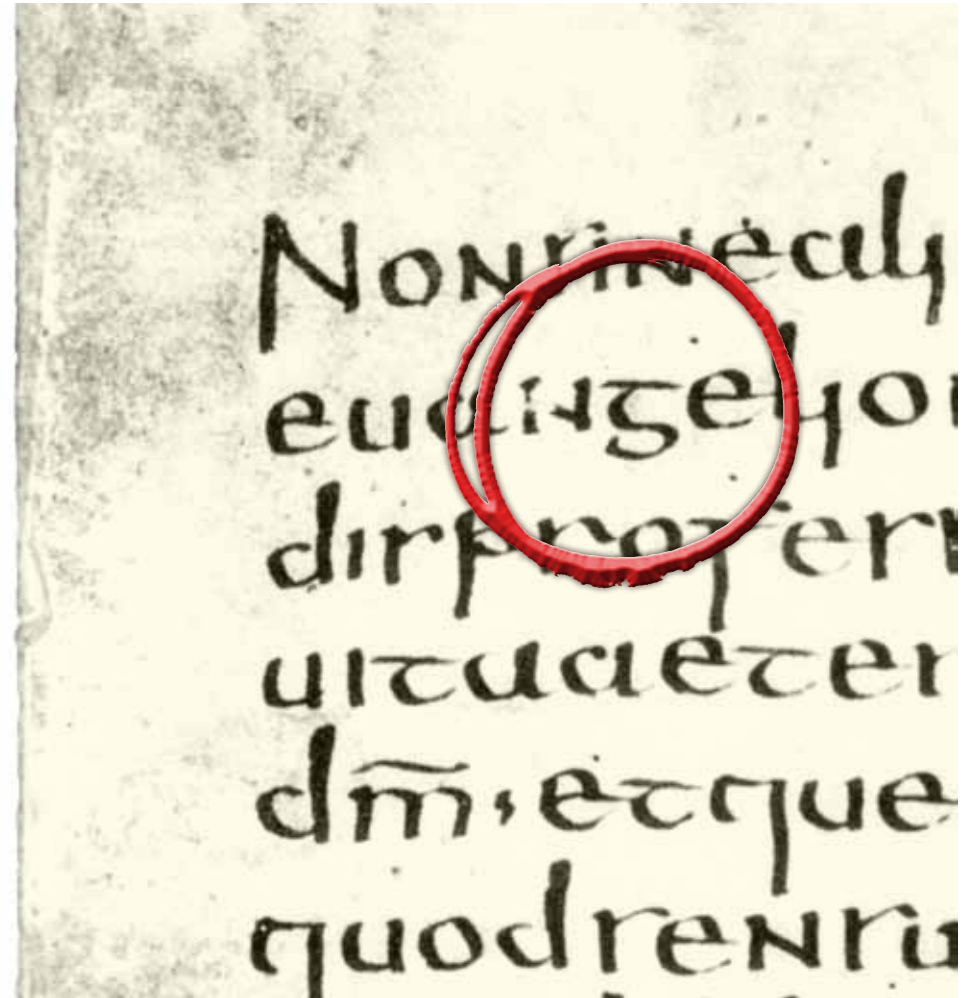 Nonsineali
euangelio
disprofer
uitaaeter
dm̄,etque
quodsensu